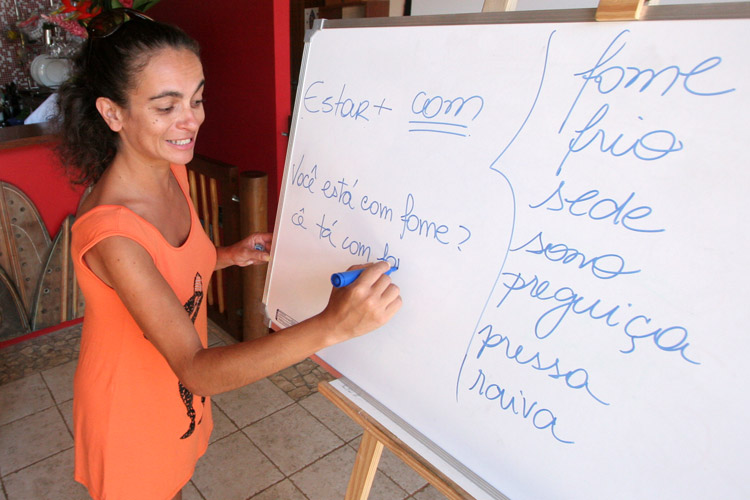 Estar + com
Você está com fome?
cê tá com fo
fome
frio
sede
sono
preguiça
pressa
raiva